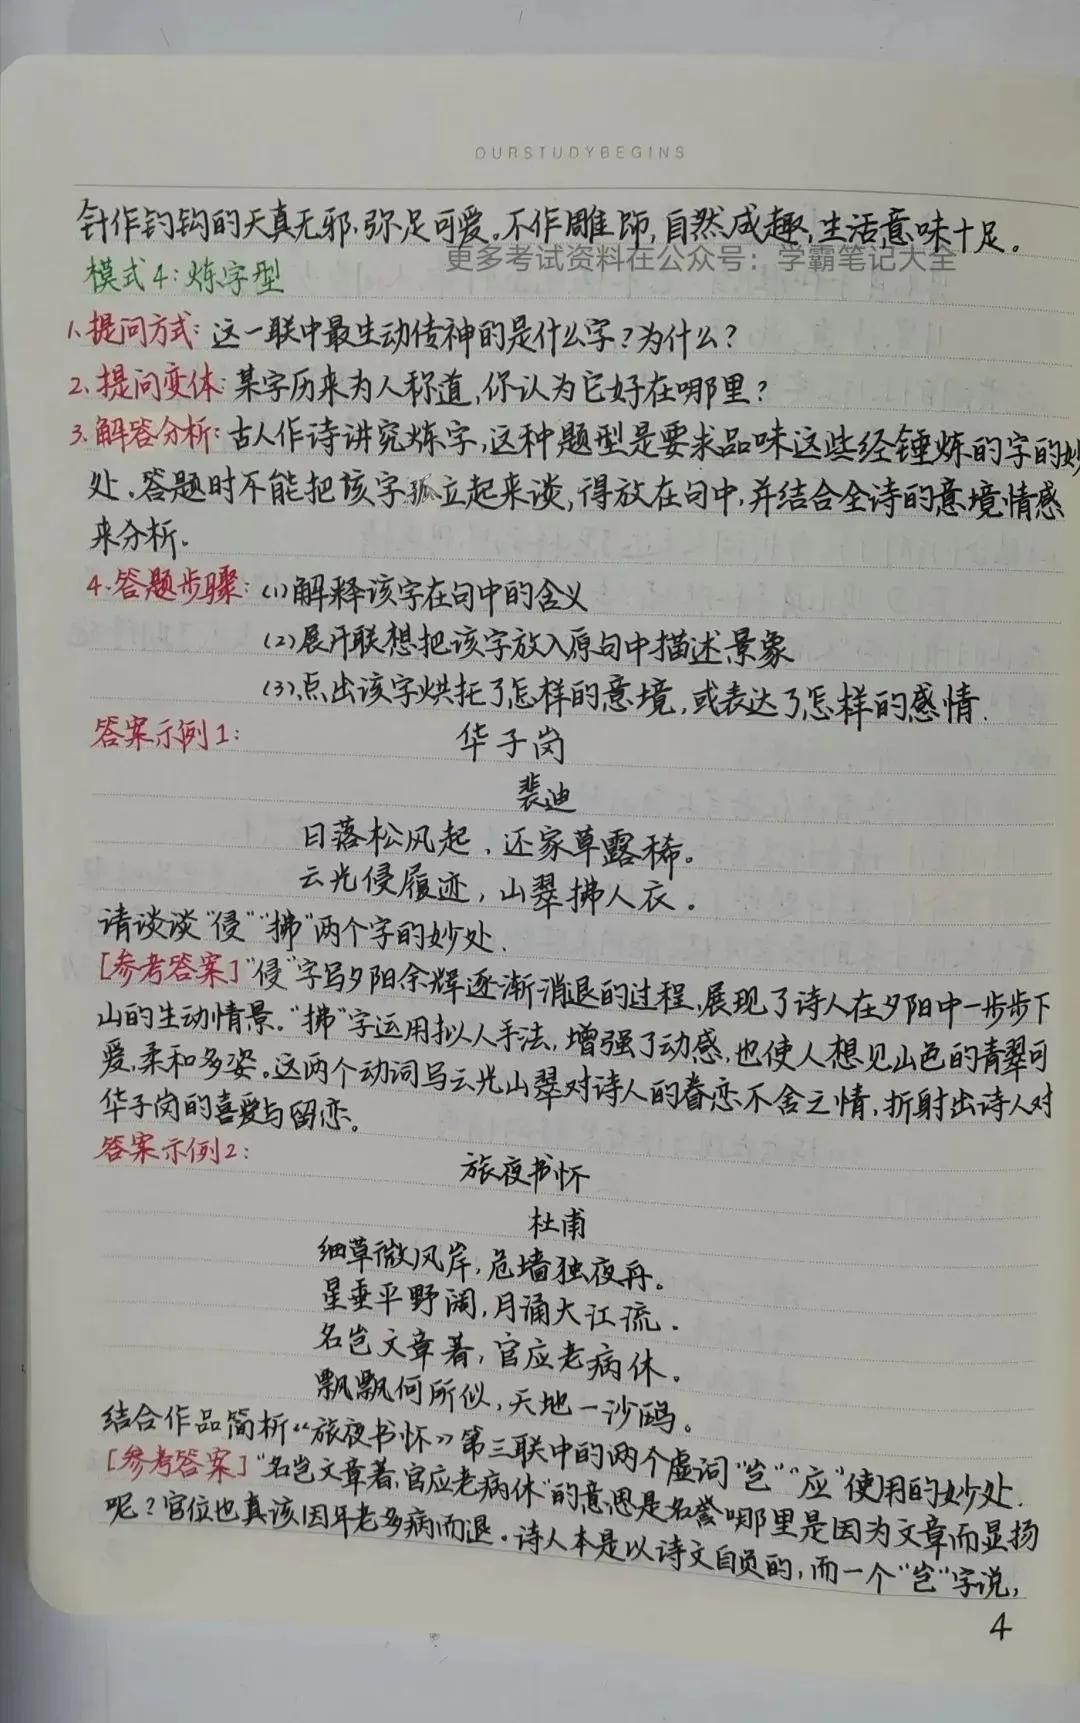 OURSTUDYBEGINS
针作钓钩的天真无邪,弥足可爱。不作雕饰,自然成趣,生活意味十足。
更多考试资料在公众号：学霸笔记大全
模式4:炼字型
1.提问方式:这一联中最生动传神的是什么字?为什么?
2.提问变体:某字历来为人称道,你认为它好在哪里?
3.解答分析:古人作诗讲究炼字,这种题型是要求品味这些经锤炼的字的妙
处.答题时不能把该字孤立起来谈,得放在句中,并结合全诗的意境情感
来分析.
4.答题步骤:(1)解释该字在句中的含义
(2)展开联想把该字放入原句中描述景象
(3)点出该字烘托了怎样的意境,或表达了怎样的感情.
答案示例1:
华子岗
裴迪
日落松风起,还家草露稀。
云光侵履迹,山翠拂人衣.
请谈谈"侵""拂"两个字的妙处.
[参考答案]"侵"字写夕阳余辉逐渐消退的过程,展现了诗人在夕阳中一步步下
山的生动情景。"拂"字运用拟人手法,增强了动感,也使人想见山色的青翠可
爱,柔和多姿。这两个动词写云光山翠对诗人的眷恋不舍之情,折射出诗人对
华子岗的喜爱与留恋。
答案示例2:
旅夜书怀
杜甫
细草微风岸,危墙独夜舟。
星垂平野阔,月涌大江流.
名岂文章著,官应老病休。
飘飘何所似,天地一沙鸥。
结合作品简析《旅夜书怀》第三联中的两个虚词"岂""应"使用的妙处.
[参考答案]"名岂文章著,官应老病休"的意思是名誉哪里是因为文章而显扬
呢?官位也真该因年老多病而退.诗人本是以诗文自负的,而一个"岂"字说,
4